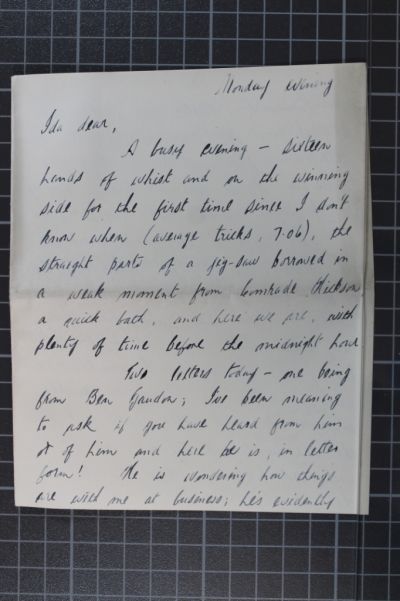 Monday evening
Ida dear,
A busy evening – sixteen
hands of whist and on the winning
side for the first time since I don't
know when (average tricks, 7.06), the
straight parts of a jig-saw borrowed in
a weak moment from Comrade
a quick bath, and here we are, with
plenty of time before the midnight hour
Two letters today – one being
from Ben; I've been meaning
to ask if you have heard from him
or of him and here he is, in letter
form! He is wondering how things
are with me at business; he's evidently